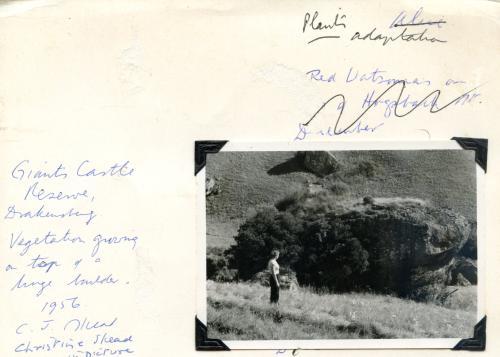 Plants
adaptation
Red Watsonias on
a Hogsback Mt.
December
Giants Castle
Reserve,
Drakensburg
Vegetation growing
on top of a
huge boulder.
1956
C. J. Skead
Christine Skead
in Picture